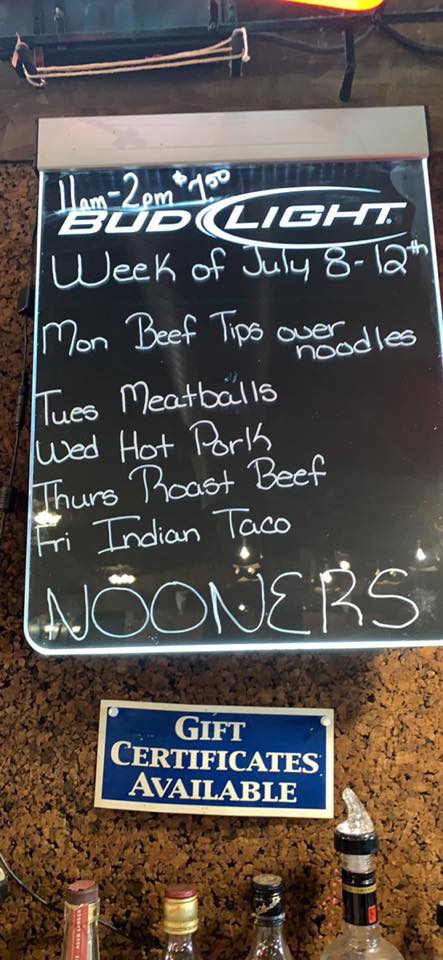 11am-2pm $7.00
BUD LIGHT
Week of July 8-12th
Mon Beef Tips over noodles
Tues Meatballs
Wed Hot Pork
Thurs Roast Beef
Fri Indian Taco
NOONERS
GIFT
CERTIFICATES
AVAILABLE